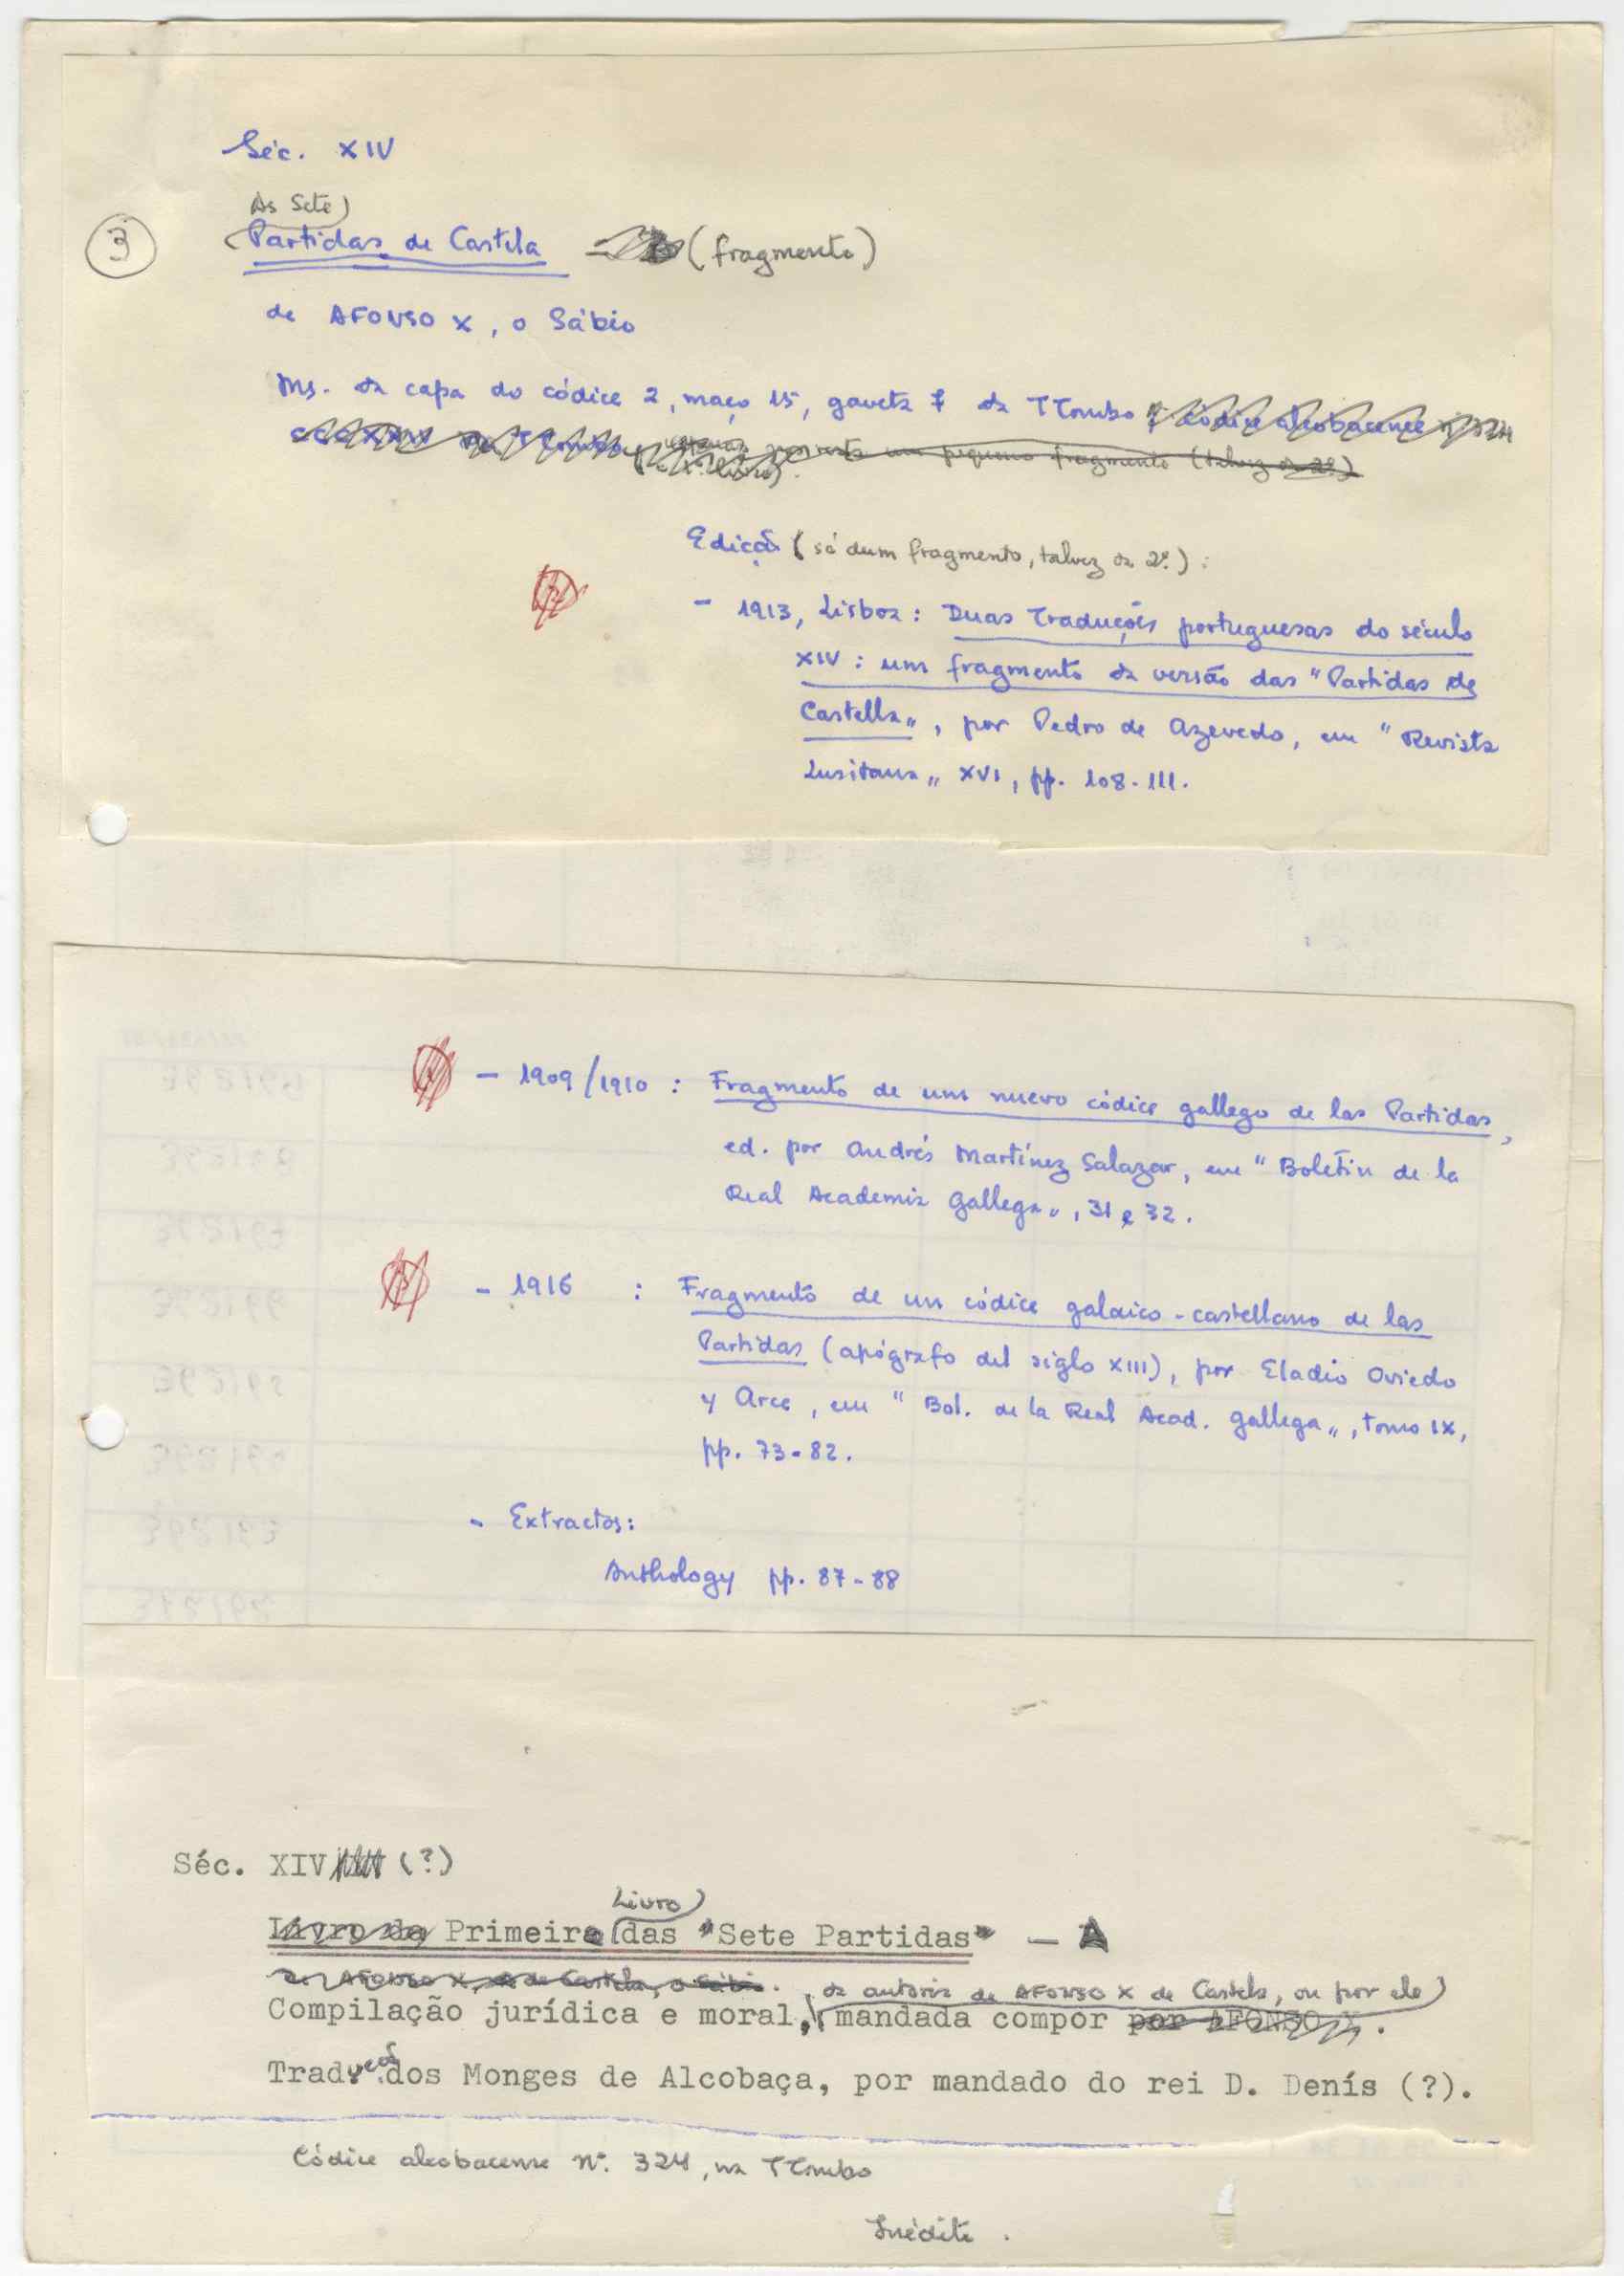 Séc. XIV
As Sete
3
Partidas de Castela (fragmento)
de AFONSO X, o Sábio
Ms. da capa do códice 2, maço 15, gaveta 7 da TTombo e códice alcobacence nº 324
CCCXXIV da TTombo, pequeno fragmento (talvez da 2ª)
Edição (só dum fragmento, talvez da 2ª.) :
- 1913, Lisboa : Duas Traduções portuguesas do século
XIV : um fragmento da versão das "Partidas de
Castella", por Pedro de Azevedo, em "Revista
Lusitana" XVI, pp. 108-111.
- 1909/1910 : Fragmento de um nuevo códice gallego de las Partidas,
ed. por Andrés Martínez Salazar, em "Boletín de la
Real Academia Gallega", 31 e 32.
- 1916 : Fragmento de un códice galaico-castellano de las
Partidas (apógrafo del siglo XIII), por Eladio Oviedo
y Arce, em "Bol. de la Real Acad. Gallega", tomo IX,
pp. 73-82.
- Extractos:
Anthology pp. 87-88
Séc. XIV (?)
Livro
Livro da Primeira das "Sete Partidas" - A
de AFONSO X, de Castela, o Sábio. da autoria de AFONSO X de Castela, ou por ele
Compilação jurídica e moral, mandada compor por AFONSO X.
Tradução dos Monges de Alcobaça, por mandado do rei D. Denís (?).
Códice alcobacense nº. 324, na TTombo
Inédito.